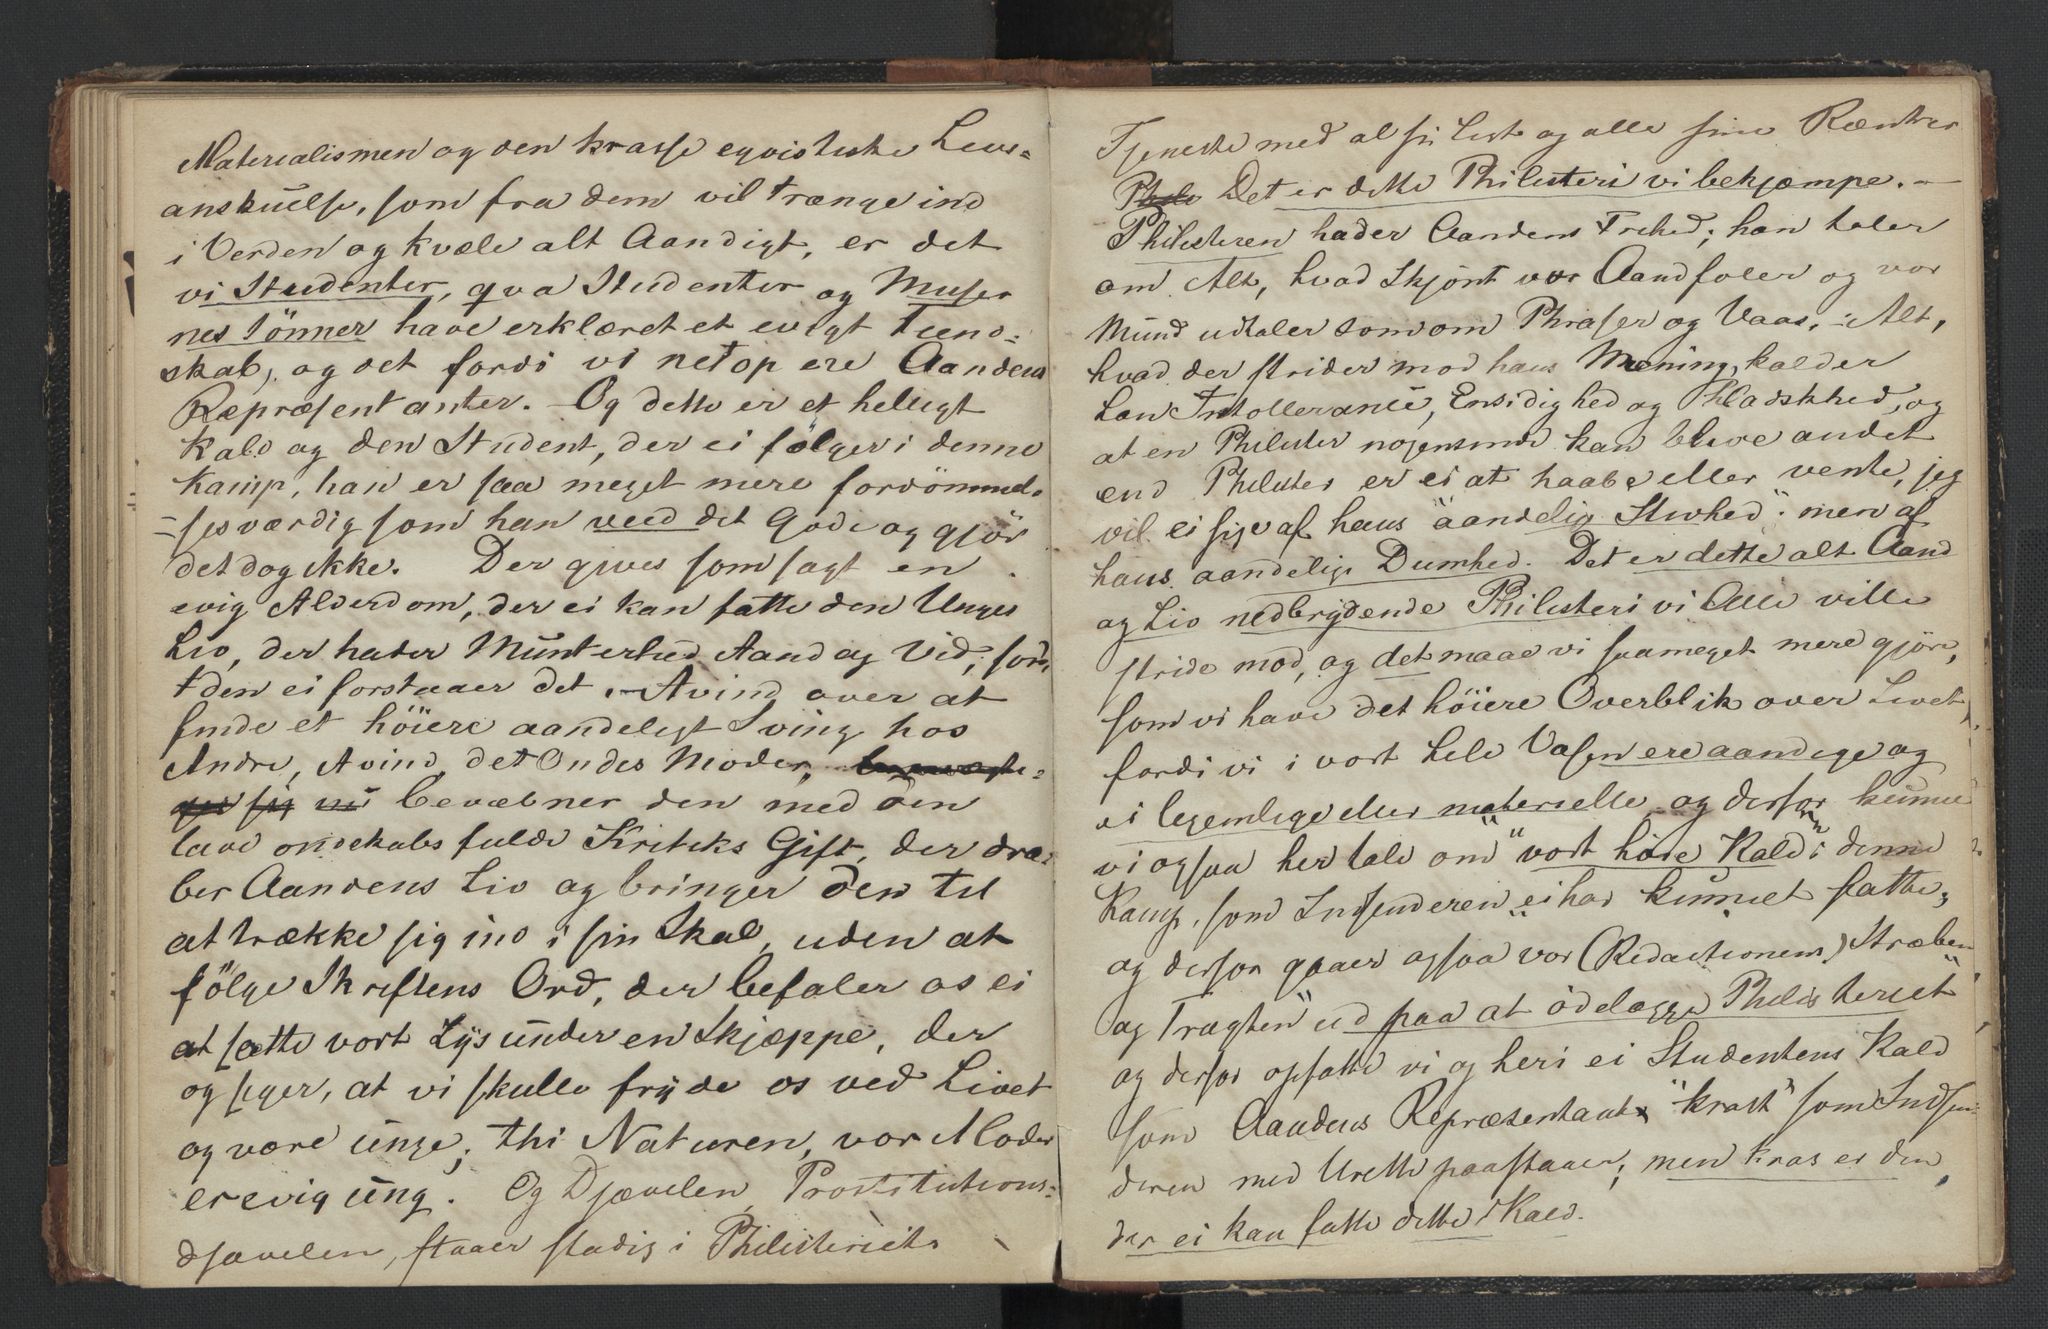 Materialismen og den krasse egoistiske Livs-
anskuelse, som fra dem vil trænge ind
i Verden og kvæle alt Aandigt, er det
vi Studenter, qva Studenter og Muser
nes Sönner have erklæret et evigt Fiend-
skab, og det fordi vi netop ere Aandens
Repræsentanter. Og dette er et helligt
Kald og den Student, der ei fölger i denne
Kamp, han er saa meget mere fordömmel-
-sesværdig som han veed det Gode og gjör
det dog ikke. Der gives som sagt en
evig Alderdom, der ei kan fatte den Unges
Liv, der hader Munterhed Aand og Vid, fordi
den ei forstaaer det. - Avind over at
finde et höiere aandeligt Sving hos
Andre, Avind, det Ondes Moder,
sig nu bevæbner den med den
lave ondskabsfulde Kritiks Gift, der dræ-
ber Aandens Liv og bringer den til
at trække sig ind i sin Skal, uden at
fölge Skriftens Ord, der befaler os ei
at sætte vort Lys under en Skjæppe, der
og siger, at vi skulle fryde os ved Livet
og være unge; thi Naturen, vor Moder
er evig ung. Og Djævelen, Prostitutions-
djævelen, staaer stadig i Philisteriets
Tjeneste med al sin List og alle sine Rænker
Phile Det er dette Philisteri vi bekjæmpe. -
Philisteren hader Aandens Frihed; han taler
om Alt, hvad Skjönt vor Aand föler og vor
Mund udtaler som om Phraser og Vaas, - Alt,
hvad der strider mod hans Mening, kalder
han Intollerance, Ensidighed og Pladskhed, og
at en Philister nogensinde kan blive andet
end Philister er ei at haabe eller vente, jeg
vil ei sige af hans "aandelig Stivhed": men af
hans aandelige Dumhed. Det er dette alt Aand
og Liv nedbrydende Philisteri vi Alle ville
stride mod, og det maae vi saameget mere gjöre,
som vi have det höiere Overblik over Livet,
fordi vi i vort hele Væsen ere aandige og
ei legemlige eller materielle og derfor kunne
vi ogsaa her tale om "vort höie Kald" i denne
Kamp, som Indsenderen ei har kunnet fatte;
og derfor gaaer ogsaa vor (Redactionens) "Stræben
og Tragten" ud paa at ödelægge Philisteriet
og derfor opfatte vi og heri ei Studentens Kald
som Aandens Repræsentant "krast" som Indsen-
deren med Urette paastaaer; men kras er den,
der ei kan fatte dette Kald.